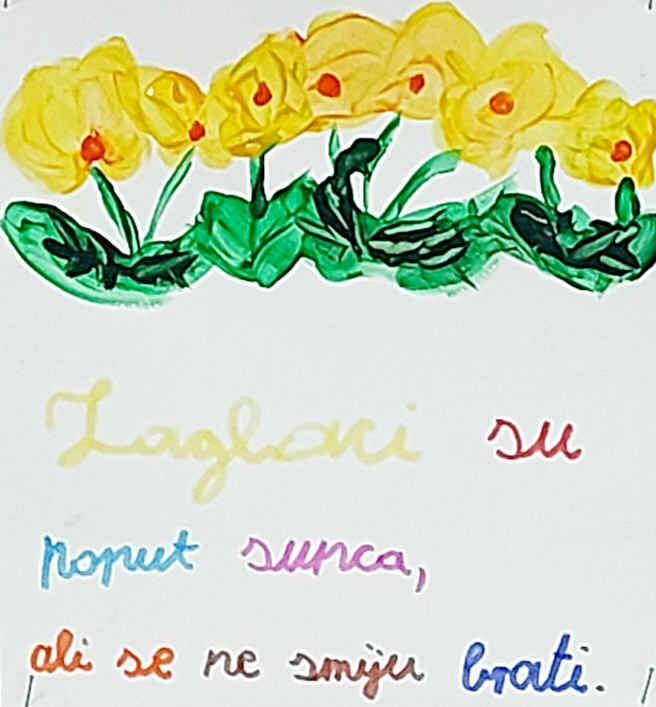 Žaglaci su
poput sunca,
ali se ne smiju brati.